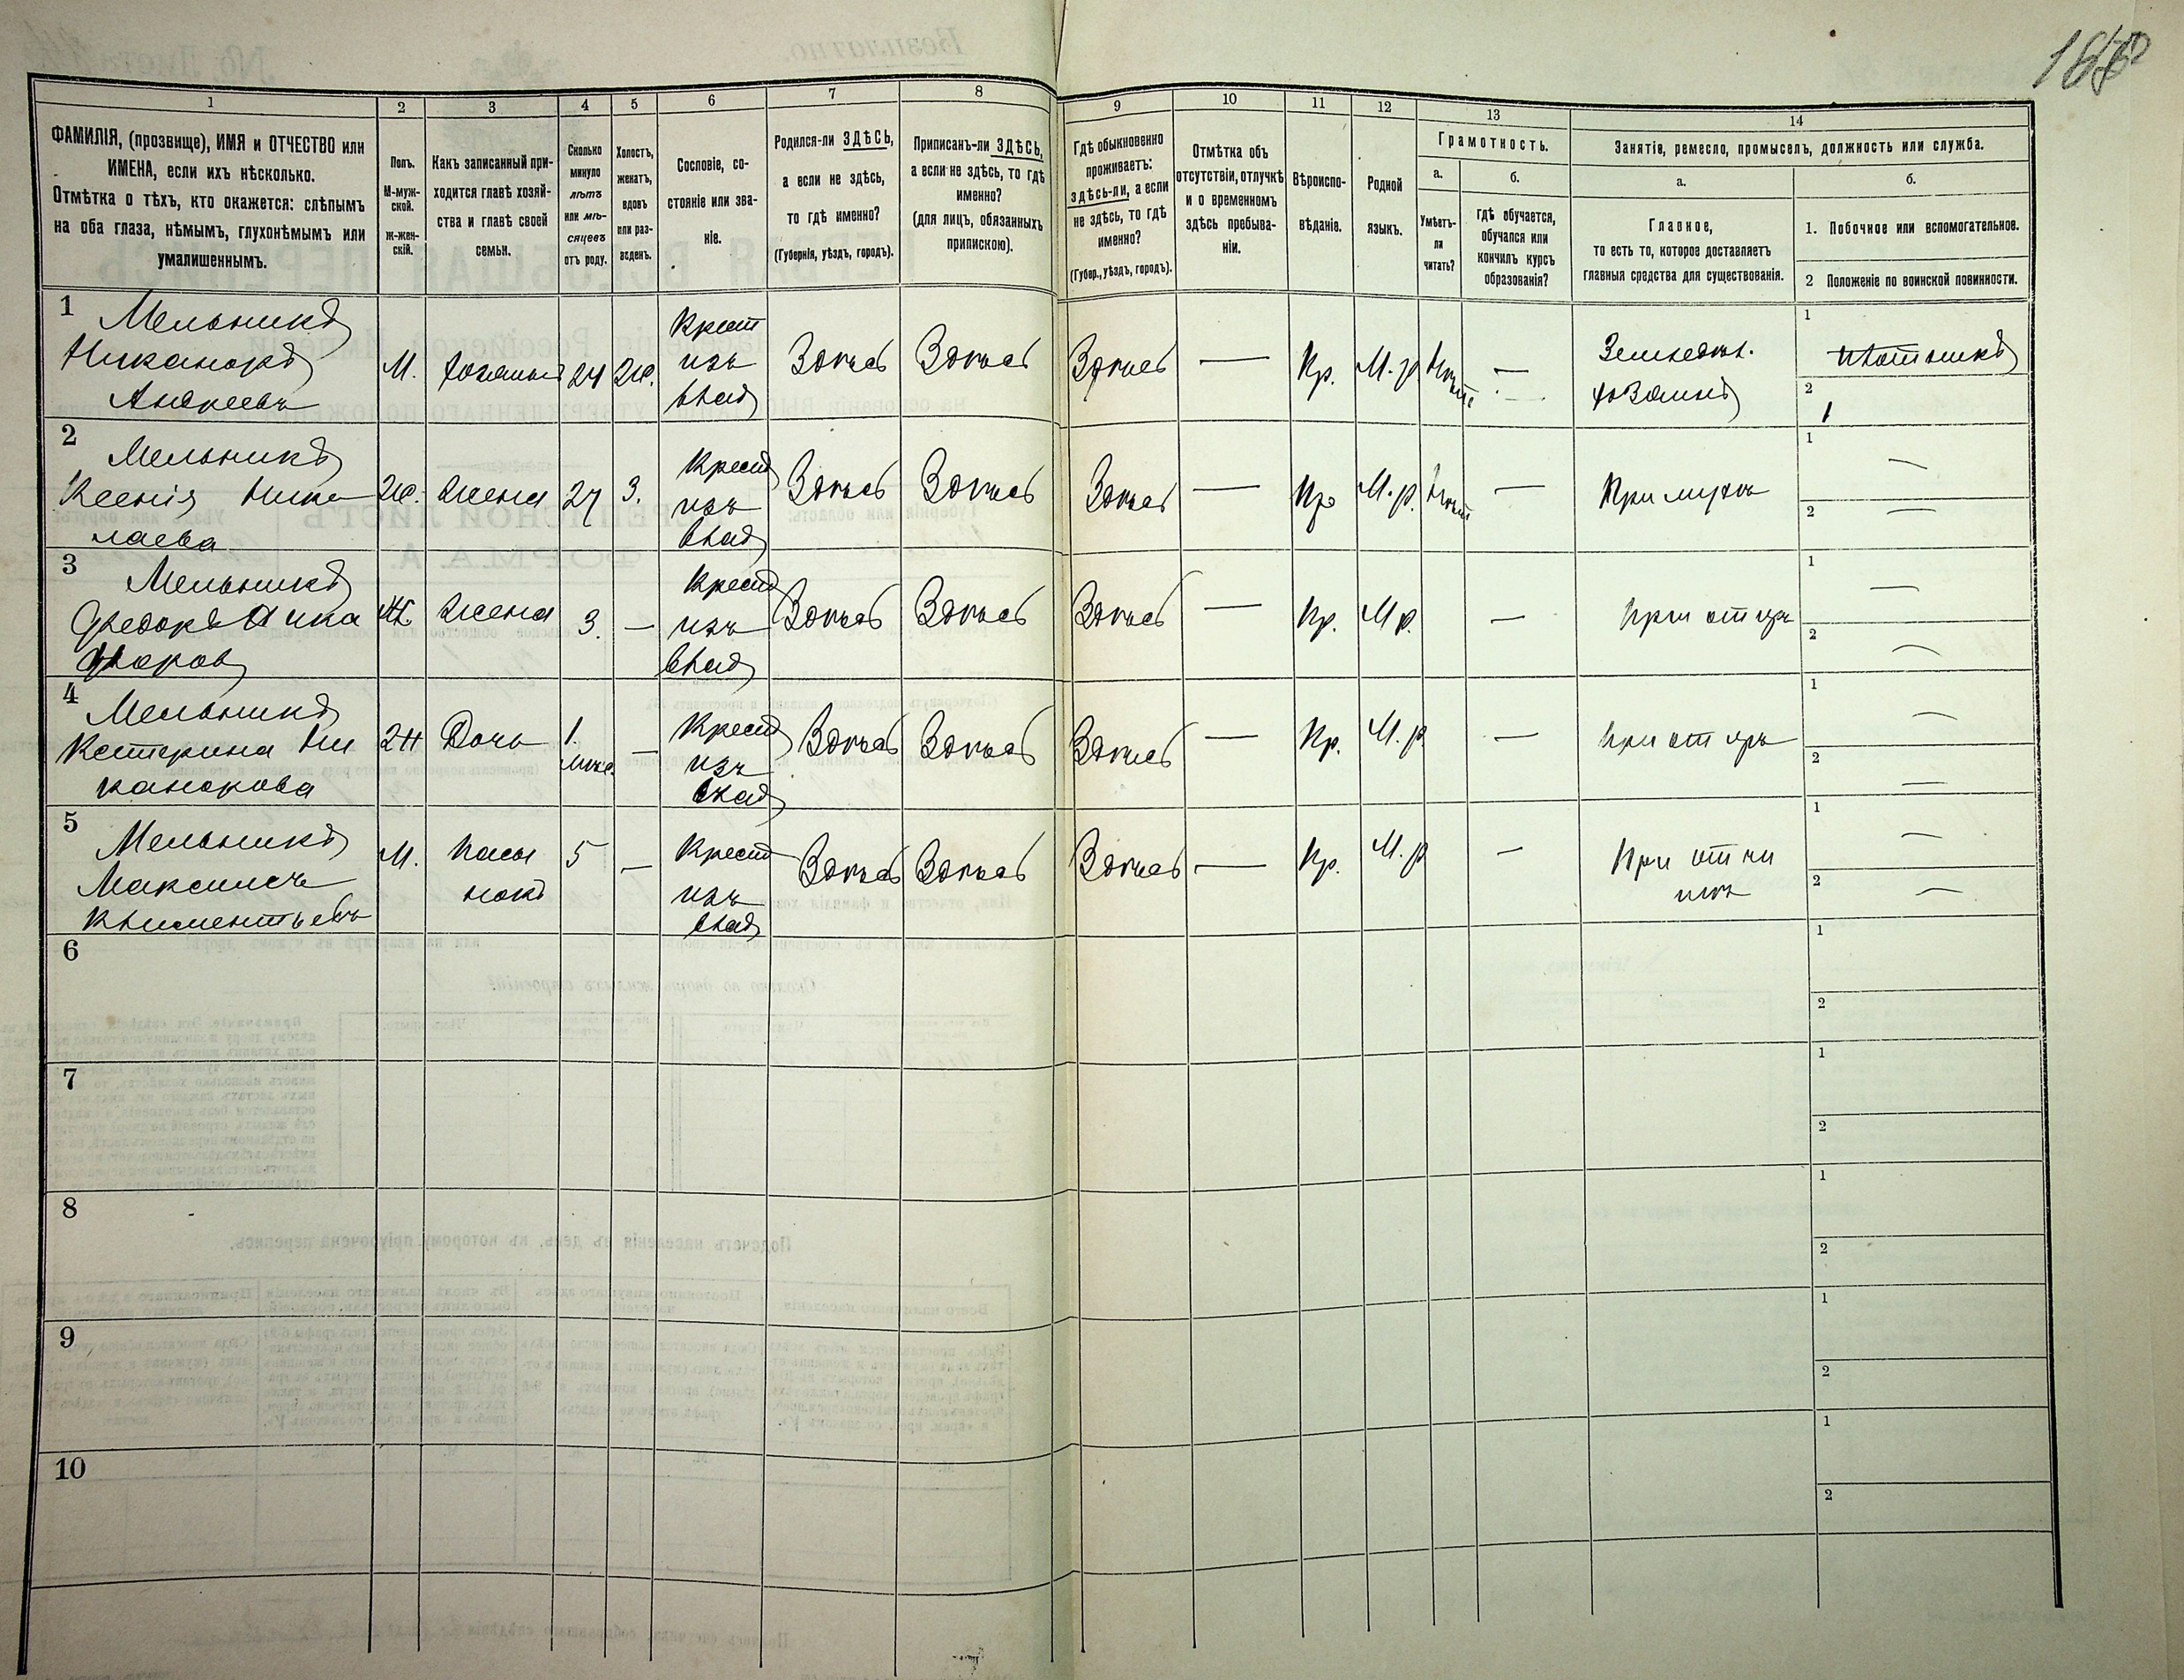 1 2 3 4 5 6 7 8 9 10 11 12 13 14
ФАМИЛІЯ, (прозвище), ИМЯ и ОТЧЕСТВО или
ИМЕНА, если ихъ нѣсколько.
Отмѣтка о тѣхъ, кто окажется: слѣпымъ
на оба глаза, нѣмымъ, глухонѣмымъ или
умалишеннымъ.
Полъ.
М-муж-
ской.
ж-жен-
скій.
Какъ записанный при-
ходится главѣ хозяй-
ства и главѣ своей
семьи.
Сколько
минуло
лѣтъ
или мѣ-
сяцевъ
отъ роду.
Холостъ,
женатъ,
вдовъ
или раз-
веденъ.
Сословіе, со-
стояніе или зва-
ніе.
Родился-ли ЗДѢСЬ,
а если не здѣсь,
то гдѣ именно?
(Губернія, уѣздъ, городъ).
Приписанъ-ли ЗДѢСЬ,
а если не здѣсь, то гдѣ
именно?
(для лицъ, обязанныхъ
припискою).
Гдѣ обыкновенно
проживаетъ:
здѣсь-ли, а если
не здѣсь, то гдѣ
именно?
(Губер., уѣздъ, городъ).
Отмѣтка объ
отсутствіи, отлучкѣ
и о временномъ
здѣсь пребыва-
ніи.
Вѣроиспо-
вѣданіе.
Родной
языкъ.
Грамотность.
а.
Умѣетъ-
ли
читать?
б.
гдѣ обучается,
обучался или
кончилъ курсъ
образованія?
Занятіе, ремесло, промыселъ, должность или служба.
а.
Главное,
то есть то, которое доставляетъ
главныя средства для существованія.
б.
1. Побочное или вспомогательное.
2 Положеніе по воинской повинности.
1 Мельникъ
Никаноръ
Андреевъ
М. хозяинъ 24 Ж.
Крест
изъ
влад
Здѣсь Здѣсь Здѣсь — Кр. М.р. —
Земледѣл.
хозяинъ
1 плотникъ
2 1
2 Мельникъ
Ксенія Ника
лаева
Ж. жена 27 З.
Крест
изъ
влад
Здѣсь Здѣсь Здѣсь — М.р. —
При мужѣ
1 —
2 —
3 Мельникъ
Федоръ Ника
норов
жена 3. —
Крест
изъ
влад
Здѣсь Здѣсь Здѣсь — Кр. М р. —
При отцѣ
1 —
2 —
4 Мельникъ
Катерина Ни
канорова
Ж Дочь 1.
мѣс. —
Крест
изъ
влад
Здѣсь Здѣсь Здѣсь — Кр. М.р. —
При отцѣ
1 —
2 —
5 Мельникъ
Максимъ
Климентьевъ
М. Пасы
нокъ 5 —
Крест
изъ
влад
Здѣсь Здѣсь Здѣсь — Кр. М.р —
При отчи
мѣ
1 —
2 —
6 1
2
7 1
2
8 1
2
9 1
2
10 1
2